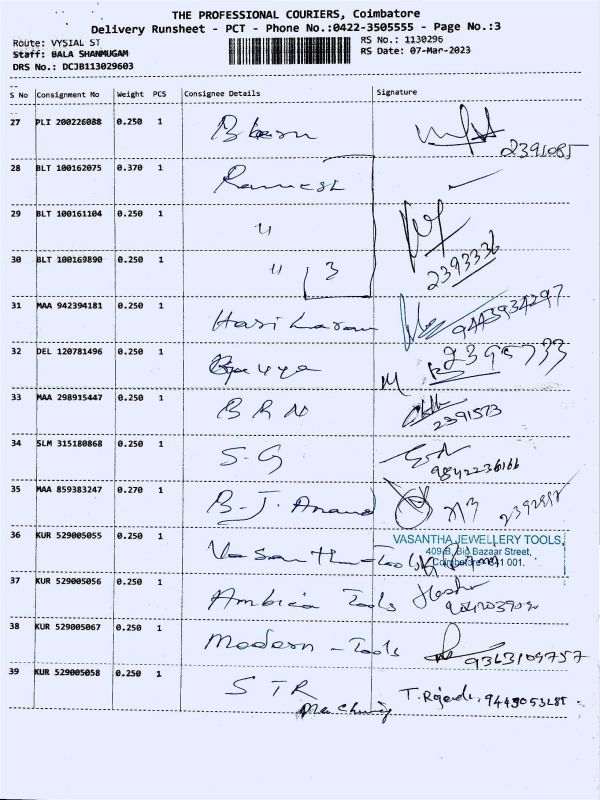 THE PROFESSIONAL COURIERS, Coimbatore
Delivery Runsheet - PCT - Phone No.:0422-3505555 - Page No.:3
Route: VYSIAL ST
Staff: BALA SHANMUGAM
DRS No.: DCJB113029603
RS No.: 1130296
RS Date: 07-Mar-2023
S No Consignment No Weight PCS Consignee Details Signature
27 PLI 200226088 0.250 1
28 BLT 100162075 0.370 1 Ramesh
29 BLT 100161104 0.250 1 "
2393336
30 BLT 100169890 0.250 1 " 3
31 MAA 942394181 0.250 1 Hari haran 9443934297
32 DEL 120781496 0.250 1
33 MAA 298915447 0.250 1 B R N 2391573
34 SLM 315180868 0.250 1 S-G 9842236166
35 MAA 859383247 0.270 1 B-J. Anand
36 KUR 529005055 0.250 1 Vasantha-Tools
VASANTHA JEWELLERY TOOLS,
409-B, Big Bazaar Street,
Coimbatore-641 001.
37 KUR 529005056 0.250 1 Ambica Tools
38 KUR 529005067 0.250 1 Modern - Tools 9363109757
39 KUR 529005058 0.250 1 STR